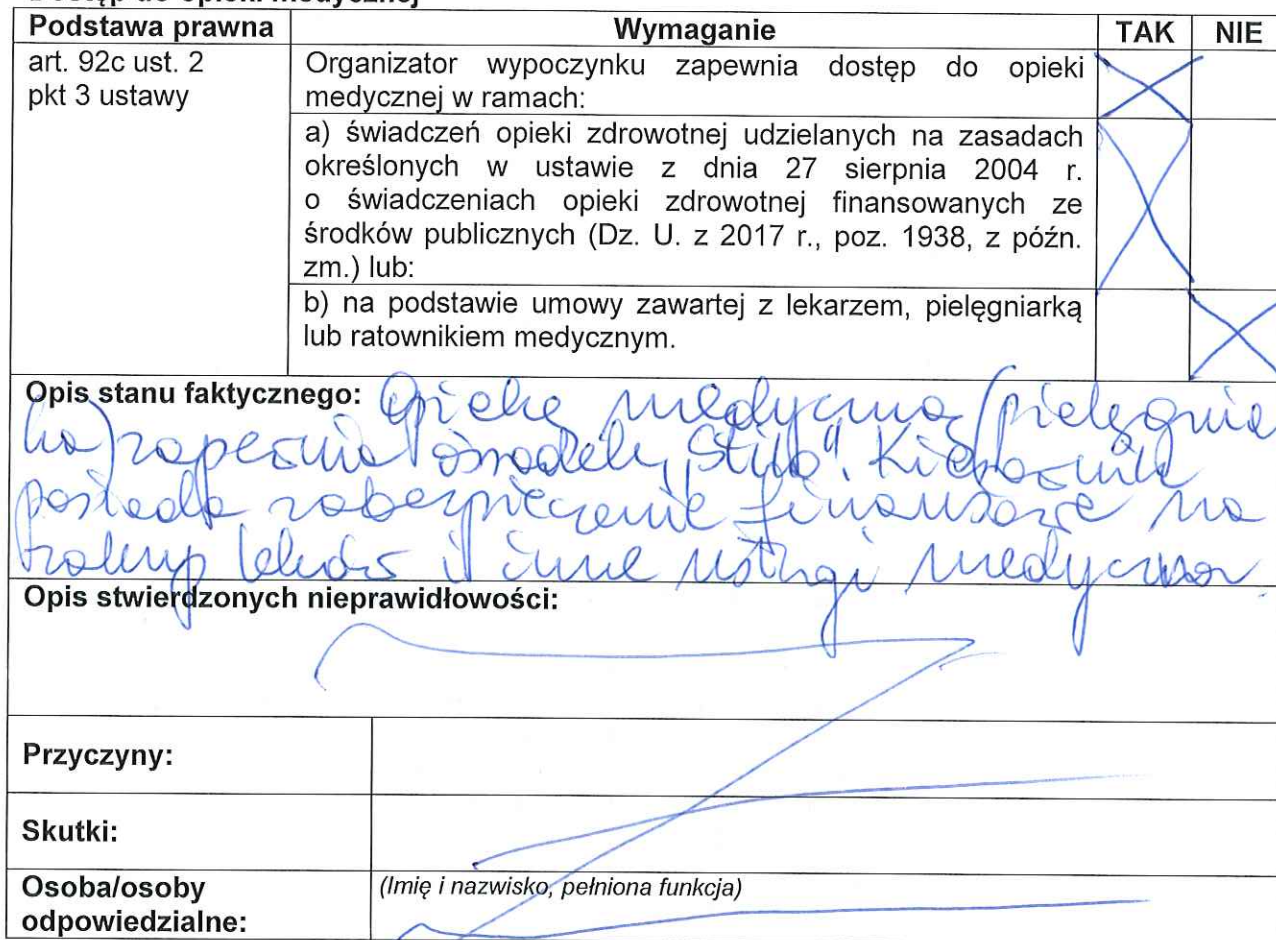 Dostęp do opieki medycznej
Podstawa prawna Wymaganie TAK NIE
art. 92c ust. 2
pkt 3 ustawy
Organizator wypoczynku zapewnia dostęp do opieki
medycznej w ramach:
a) świadczeń opieki zdrowotnej udzielanych na zasadach
określonych w ustawie z dnia 27 sierpnia 2004 r.
o świadczeniach opieki zdrowotnej finansowanych ze
środków publicznych (Dz. U. z 2017 r., poz. 1938, z późn.
zm.) lub:
b) na podstawie umowy zawartej z lekarzem, pielęgniarką
lub ratownikiem medycznym.
Opis stanu faktycznego: Opiekę medyczną (pielęgnia
ka) zapewnia ośrodek Kierownik
posiada zabezpieczenie finansowe na
zakup leków i inne usługi medyczne
Opis stwierdzonych nieprawidłowości:
Przyczyny:
Skutki:
Osoba/osoby
odpowiedzialne:
(Imię i nazwisko, pełniona funkcja)